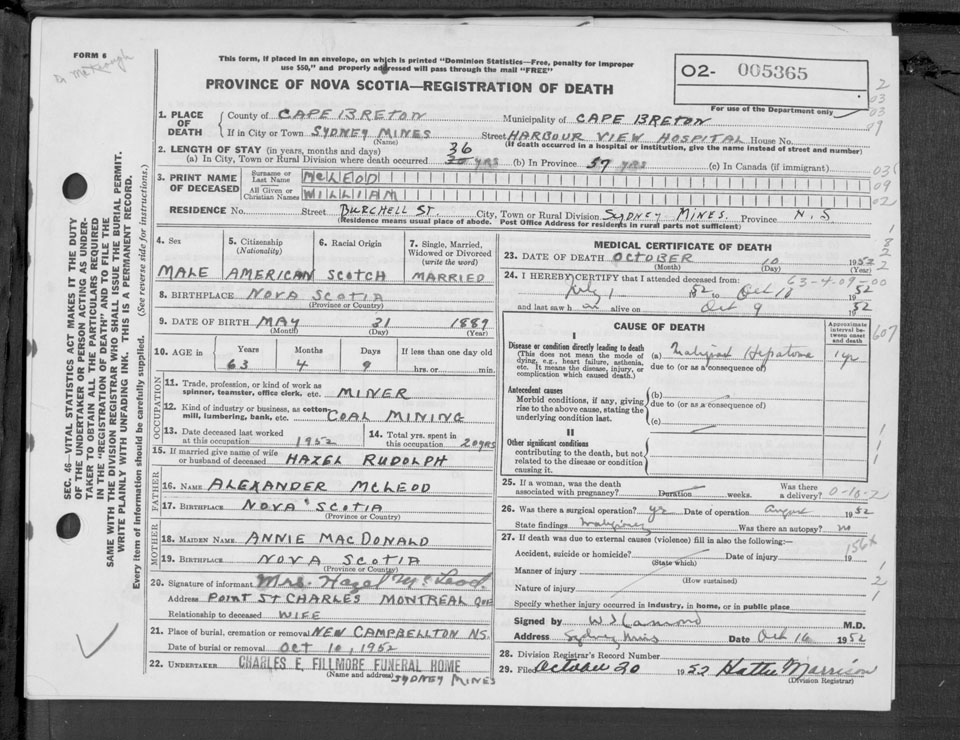 FORM 6
This form, if placed in an envelope, on which is printed "Dominion Statistics—Free, penalty for improper
use $50," and properly addressed will pass through the mail "FREE"
PROVINCE OF NOVA SCOTIA—REGISTRATION OF DEATH
O2- 005365
For use of the Department only
SEC. 46—VITAL STATISTICS ACT MAKES IT THE DUTY
OF THE UNDERTAKER OR PERSON ACTING AS UNDER-
TAKER TO OBTAIN ALL THE PARTICULARS REQUIRED
IN THE "REGISTRATION OF DEATH" AND TO FILE THE
SAME WITH THE DIVISION REGISTRAR WHO SHALL ISSUE THE BURIAL PERMIT.
WRITE PLAINLY WITH UNFADING INK. THIS IS A PERMANENT RECORD.
Every item of information should be carefully supplied. (See reverse side for instructions.)
1. PLACE OF DEATH
County of CAPE BRETON Municipality of CAPE BRETON
If in City or Town SYDNEY MINES Street HARBOUR VIEW HOSPITAL House No.
(Name) (If death occurred in a hospital or institution, give the name instead of street and number)
2. LENGTH OF STAY (in years, months and days)
(a) In City, Town or Rural Division where death occurred 36 yrs (b) In Province 57 yrs (c) In Canada (if immigrant)
3. PRINT NAME OF DECEASED
Surname or Last Name McLEOD
All Given or Christian Names WILLIAM
RESIDENCE No. Street BURCHELL ST. City, Town or Rural Division SYDNEY MINES. Province N.S
(Residence means usual place of abode. Post Office Address for residents in rural parts not sufficient)
4. Sex MALE
5. Citizenship (Nationality) AMERICAN
6. Racial Origin SCOTCH
7. Single, Married, Widowed or Divorced (write the word) MARRIED
8. BIRTHPLACE NOVA SCOTIA
(Province or Country)
9. DATE OF BIRTH MAY 31 1889
(Month) (Day) (Year)
10. AGE in Years Months Days If less than one day old
63 4 9 hrs. or min.
OCCUPATION
11. Trade, profession, or kind of work as
spinner, teamster, office clerk, etc. MINER
12. Kind of industry or business, as cotton-
mill, lumbering, bank, etc. COAL MINING
13. Date deceased last worked
at this occupation 1952
14. Total yrs. spent in
this occupation 20 YRS
15. If married give name of wife
or husband of deceased HAZEL RUDOLPH
FATHER
16. NAME ALEXANDER McLEOD
17. BIRTHPLACE NOVA SCOTIA
(Province or Country)
MOTHER
18. MAIDEN NAME ANNIE MACDONALD
19. BIRTHPLACE NOVA SCOTIA
(Province or Country)
20. Signature of informant Mrs. Hazel McLeod.
Address POINT ST CHARLES MONTREAL QUE
Relationship to deceased WIFE
21. Place of burial, cremation or removal NEW CAMPBELLTON NS.
Date of burial or removal OCT 10, 1952
22. UNDERTAKER CHARLES E. FILLMORE FUNERAL HOME
(Name and address) SYDNEY MINES
MEDICAL CERTIFICATE OF DEATH
23. DATE OF DEATH OCTOBER 10 1952
(Month) (Day) (Year)
63-4-09-00
24. I HEREBY CERTIFY that I attended deceased from:
July 1 52 to Oct 10 1952
and last saw h alive on Oct 9 1952
CAUSE OF DEATH
Approximate interval between onset and death
I
Disease or condition directly leading to death
(This does not mean the mode of
dying, e.g., heart failure, asthenia,
etc. It means the disease, injury, or
complication which caused death.)
(a) Malignant Hepatoma 1 yr
due to (or as a consequence of)
Antecedent causes
Morbid conditions, if any, giving
rise to the above cause, stating the
underlying condition last.
(b)
due to (or as a consequence of)
(c)
II
Other significant conditions
contributing to the death, but not
related to the disease or condition
causing it.
25. If a woman, was the death
associated with pregnancy? Duration weeks.
Was there
a delivery? 0-10-2
26. Was there a surgical operation? yes Date of operation August 1952
State findings Malignancy Was there an autopsy? no
27. If death was due to external causes (violence) fill in also the following:—
156x
Accident, suicide or homicide? Date of injury 19
(State which)
Manner of injury
(How sustained)
Nature of injury
Specify whether injury occurred in industry, in home, or in public place
Signed by M.D.
Address Sydney Mines Date Oct 16 1952
28. Division Registrar's Record Number
29. Filed October 20 1952 Hattie Morrison
(Division Registrar)
2
03
03
09
02
1
8
2
2
607
1
1
1
1
2
1